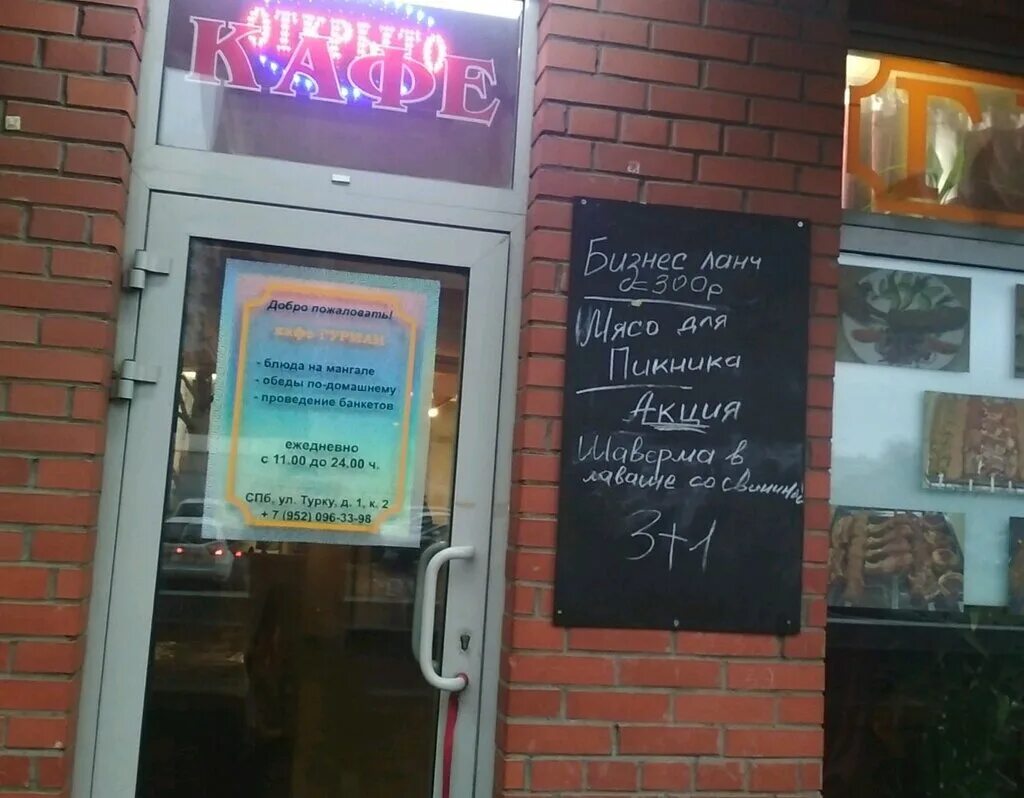 ОТКРЫТО
КАФЕ
Добро пожаловать!
кафе ГУРМАН
- блюда на мангале
- обеды по-домашнему
- проведение банкетов
ежедневно
с 11.00 до 24.00 ч.
СПб, ул. Турку, д. 1, к. 2
+ 7 (952) 096-33-98
Бизнес ланч
300р
Мясо для
Пикника
Акция
Шаверма в
лаваше со свининой
3+1
Г